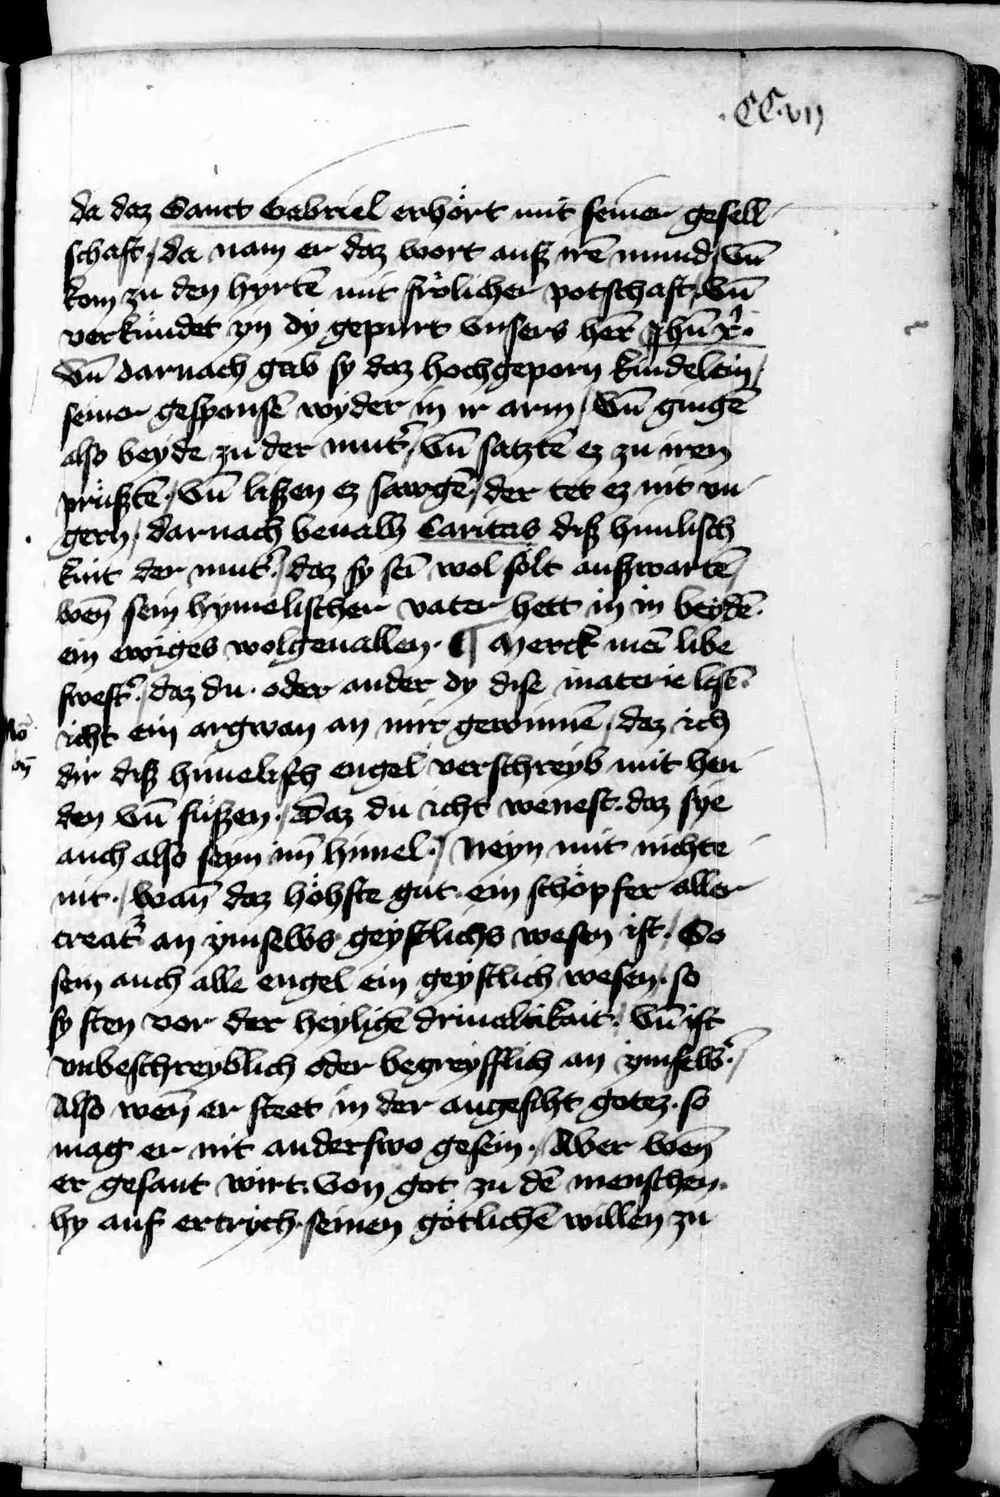 .CC.vij
da daz Sanct Gabriel erhört mit seiner gesell
schaft / da nam er daz wort auß irē mund / vn̄
kom zu den hyrtē mit frölicher potschaft / vn̄
verkündet yn dy gepurt vnsers herē Jhū xp̄i.
vn̄ darnach gab sy daz hochgeporn kindelein /
seiner gesponsē wyder in ir arm / vn̄ gingē
also beyde zu der mut̄ / vn̄ satztē ez zu iren
prüßtē / vn̄ lißen ez sawgē / der tet ez nit vn
gern / darnach beualh Caritas diß himlisch
kint der mut̄ / daz sy sei wol sölt außwartē /
wen̄ sein hymelischer vater hett in in beydē
ein ewiges wolgeuallen. ¶ Merck mei libe
swest̄ / daz du. oder ander dy dise materie lesē.
icht ein argwan an mir gewinnē / daz ich
dir diß himelisch engel verschreyb mit hen
den vn̄ füßen. / Daz du icht wenest. daz sye
auch also seyn im̄ himel. / Neyn mit nichte
nit. / wan̄ daz höhste gut. ein schöpfer aller
creat̄ an ymselbs geystlichs wesen ist / So
sein auch alle engel ein geystlich wesen. so
sy sten vor der heyligē driualtikait. vn̄ ist
vnbeschreyblich oder begreyfflich an ymselb̄. /
Also wen̄ er steet in der angesiht gotez. so
mag er nit anderswo gesein. / Aber wen̄
er gesant wirt. von got zu dē menschen.
hy auf ertrych. seinen götlichē willen zu